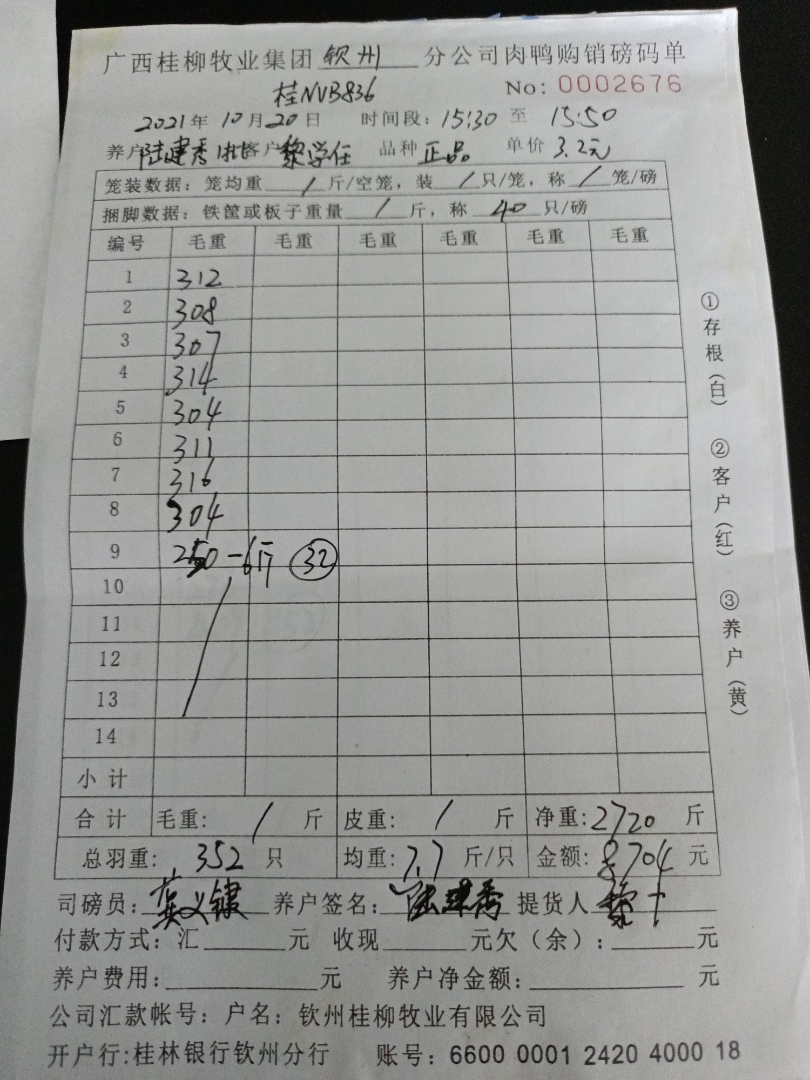 广西桂柳牧业集团 钦州 分公司肉鸭购销磅码单
桂NVB836 No: 0002676
2021年 10月 20日 时间段: 15:30 至 15:50
养户 陆建秀 客户 黎学任 品种 正品 单价 3.2元
笼装数据: 笼均重 / 斤/空笼, 装 / 只/笼, 称 / 笼/磅
捆脚数据: 铁筐或板子重量 / 斤, 称 40 只/磅
编号 毛重 毛重 毛重 毛重 毛重 毛重
1 312
2 308
3 307
4 314
5 304
6 311
7 316
8 304
9 250 -6斤 32
10
11
12
13
14
小计
合计 毛重: / 斤 皮重: / 斤 净重: 2720 斤
总羽重: 352 只 均重: 7.7 斤/只 金额: 8704 元
司磅员: 养户签名: 陆建秀 提货人 黎
付款方式: 汇 元 收现 元欠(余): 元
养户费用: 元 养户净金额: 元
公司汇款帐号: 户名: 钦州桂柳牧业有限公司
开户行:桂林银行钦州分行 账号: 6600 0001 2420 4000 18
①存根(白) ②客户(红) ③养户(黄)